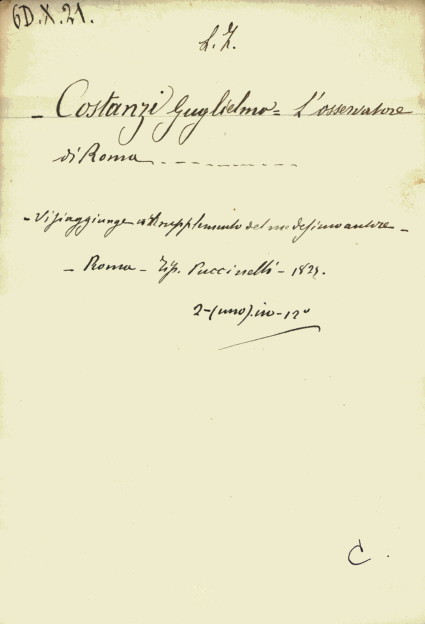 6D.X.21.
L.Z.
- Costanzi Guglielmo = L'osservatore
di Roma
- Vi si aggiunge supplemento del medesimo autore -
- Roma - Tip. Puccinelli - 182
2-(uno).in-12º
C.